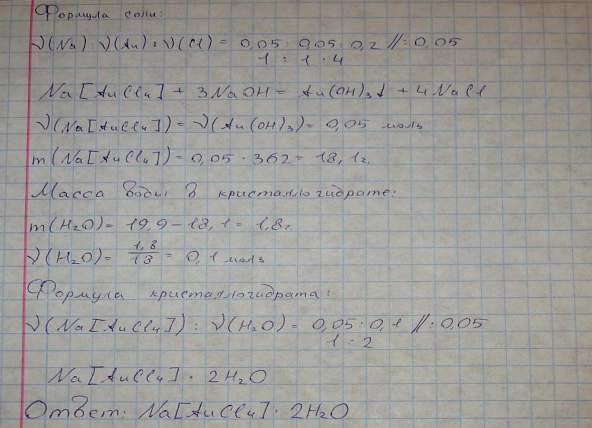 Формула соли:
ν(Na) : ν(Au) : ν(Cl) = 0,05 : 0,05 : 0,2 //: 0,05
1 : 1 : 4
Na[AuCl₄] + 3NaOH = Au(OH)₃↓ + 4NaCl
ν(Na[AuCl₄]) = ν(Au(OH)₃) = 0,05 моль
m(Na[AuCl₄]) = 0,05 · 362 = 18,1г.
Масса воды в кристаллогидрате:
m(H₂O) = 19,9 – 18,1 = 1,8г.
ν(H₂O) = 1,8/18 = 0,1 моль
Формула кристаллогидрата:
ν(Na[AuCl₄]) : ν(H₂O) = 0,05 : 0,1 //: 0,05
1 : 2
Na[AuCl₄] · 2H₂O
Ответ: Na[AuCl₄] · 2H₂O